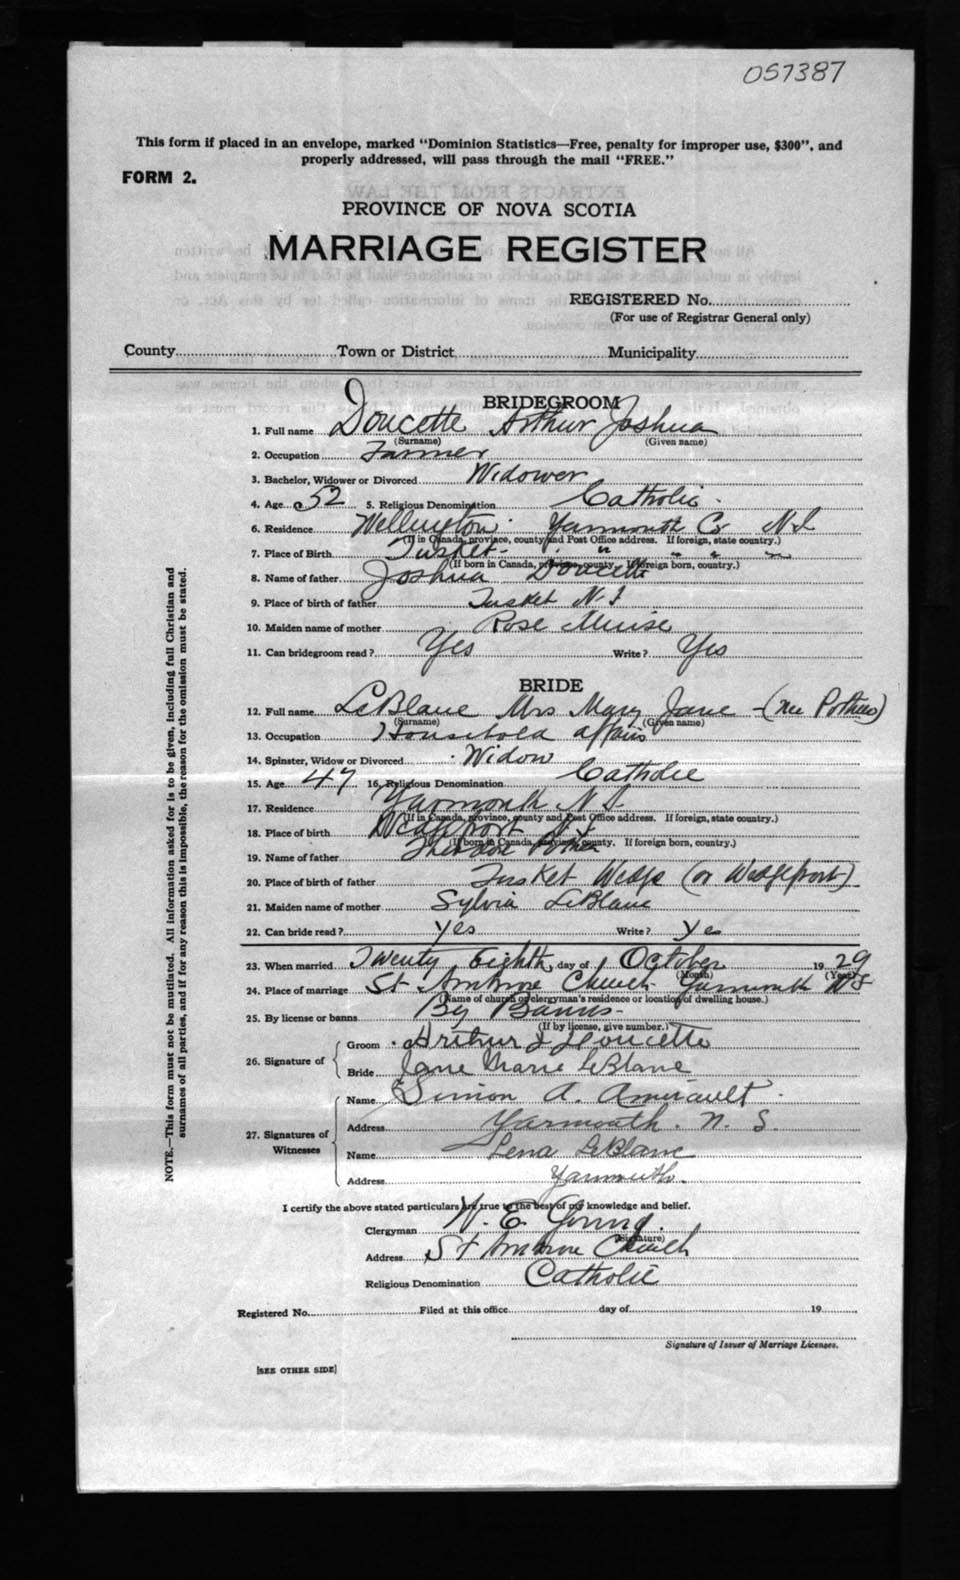 057387
This form if placed in an envelope, marked "Dominion Statistics—Free, penalty for improper use, $300", and
properly addressed, will pass through the mail "FREE."
FORM 2.
PROVINCE OF NOVA SCOTIA
MARRIAGE REGISTER
REGISTERED No.
(For use of Registrar General only)
County Town or District Municipality
BRIDEGROOM
1. Full name Doucette Arthur Joshua
(Surname) (Given name)
2. Occupation Farmer
3. Bachelor, Widower or Divorced Widower
4. Age 52 5. Religious Denomination Catholic
6. Residence Wellington Yarmouth Co N.S
(If in Canada, province, county and Post Office address. If foreign, state country.)
7. Place of Birth Tusket " " " "
(If born in Canada, province, county. If foreign born, country.)
8. Name of father Joshua Doucette
9. Place of birth of father Tusket N.S
10. Maiden name of mother Rose Muise
11. Can bridegroom read? Yes Write? Yes
BRIDE
12. Full name LeBlanc Mrs Mary Jane - (nee Pothier)
(Surname) (Given name)
13. Occupation Household affairs
14. Spinster, Widow or Divorced Widow
15. Age 47 16. Religious Denomination Catholic
17. Residence Yarmouth N.S.
(If in Canada, province, county and Post Office address. If foreign, state country.)
18. Place of birth Wedgeport N.S
(If born in Canada, province, county. If foreign born, country.)
19. Name of father Theodore Pothier
20. Place of birth of father Tusket Wedge (or Wedgeport)
21. Maiden name of mother Sylvia LeBlanc
22. Can bride read? Yes Write? Yes
23. When married Twenty Eighth day of October 1929
(Month) (Year)
24. Place of marriage St Ambrose Church Yarmouth NS
(Name of church or clergyman's residence or location of dwelling house.)
25. By license or banns By Banns
(If by license, give number.)
26. Signature of Groom Arthur J Doucette
Bride Jane Marie LeBlanc
27. Signatures of Witnesses Name Simon A. Amirault
Address Yarmouth. N. S.
Name Lena LeBlanc
Address Yarmouth.
I certify the above stated particulars are true to the best of my knowledge and belief.
Clergyman W. E. Young.
(Signature)
Address St Ambrose Church
Religious Denomination Catholic
Registered No. Filed at this office day of 19
Signature of Issuer of Marriage Licenses.
[SEE OTHER SIDE]
NOTE.—This form must not be mutilated. All information asked for is to be given, including full Christian and
surnames of all parties, and if for any reason this is impossible, the reason for the omission must be stated.